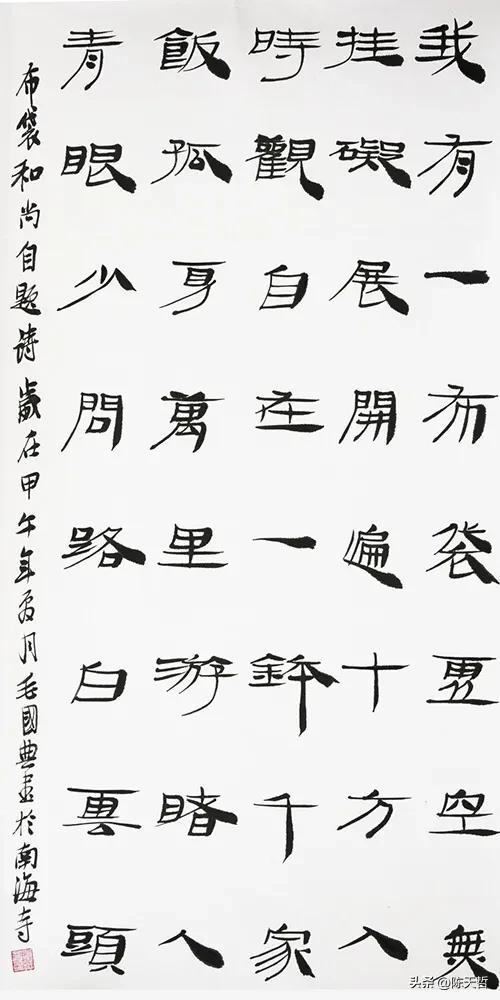 我有一布袋虛空無
挂礙展開遍十方入
時觀自在一鉢千家
飯孤身萬里游睹人
青眼少問路白雲頭
布袋和尚自題詩歲在甲午年夏月毛國典書於南海寺
头条 @陈天哲